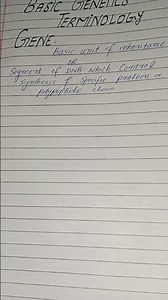 BASIC GENETICS
TERMINOLOGY
GENE
Basic unit of inheritance
OR
Segment of DNA which control
synthesis of specific protein or
polypeptide chain